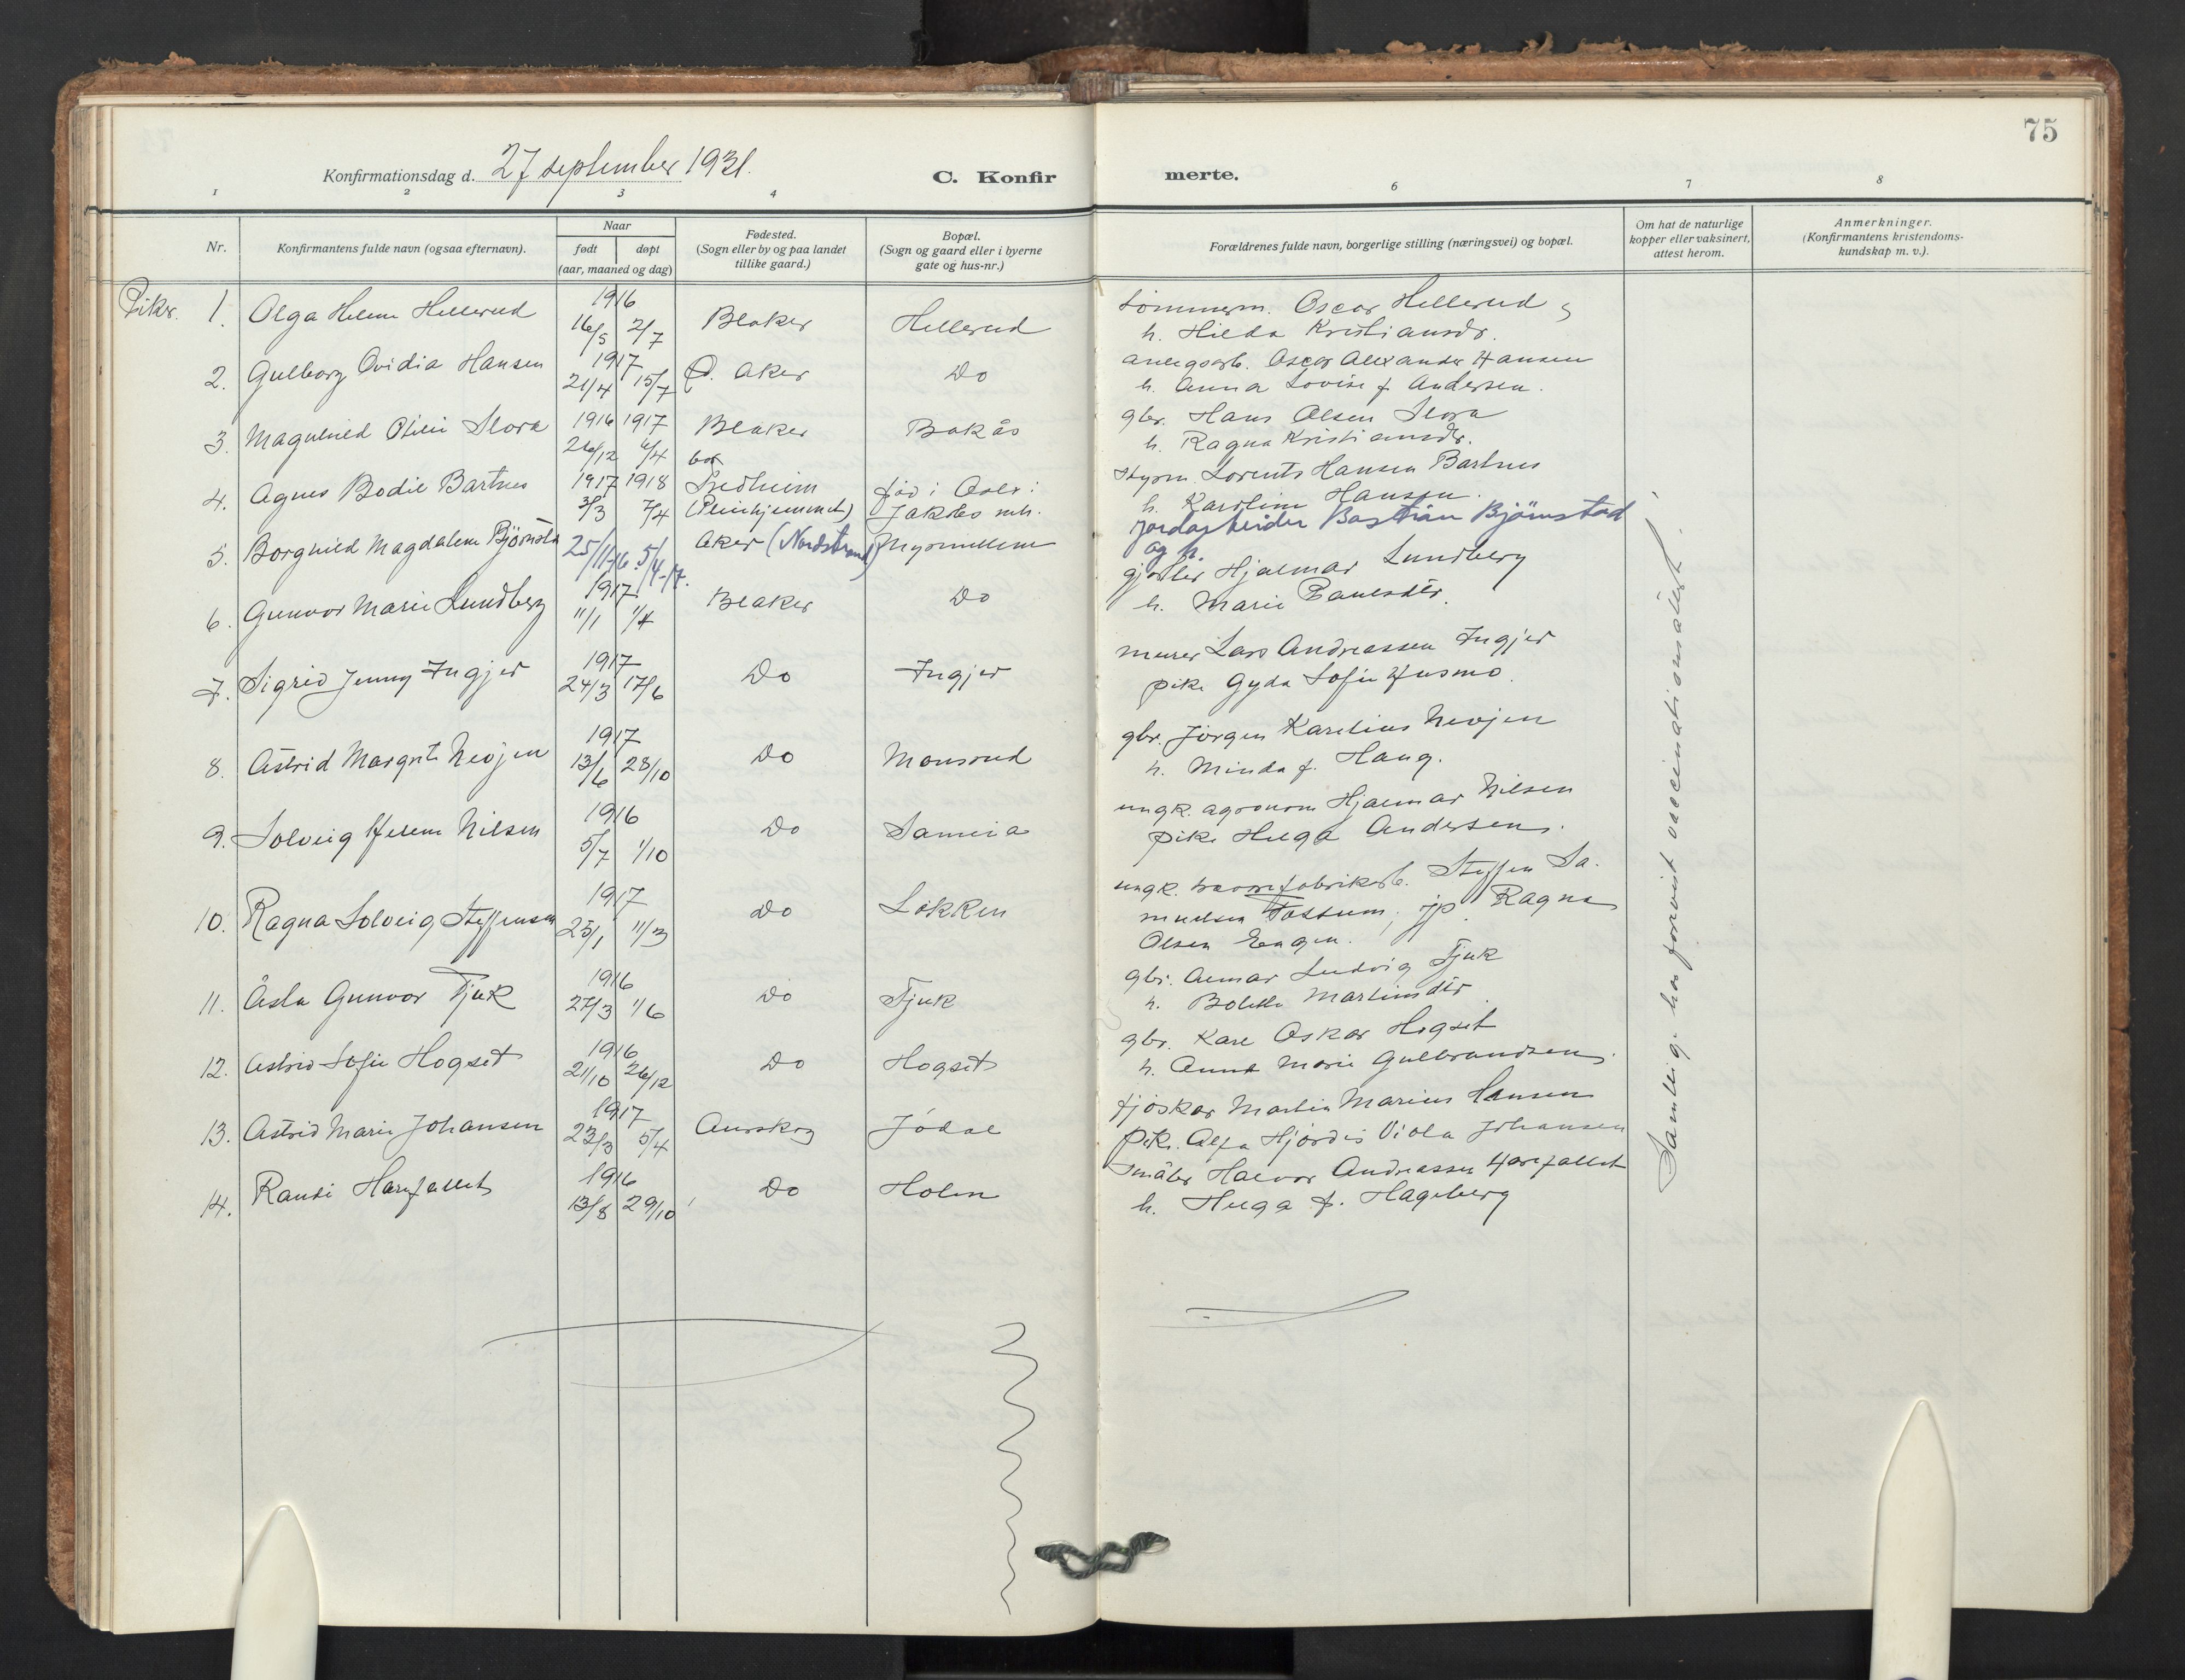 75
Konfirmationsdag d. 27 september 1931.
C. Konfir
merte.
1 2 3 4 6 7 8
Nr.
Konfirmantens fulde navn (ogsaa efternavn).
Naar
født døpt
(aar, maaned og dag)
Fødested.
(Sogn eller by og paa landet
tillike gaard.)
Bopæl.
(Sogn og gaard eller i byerne
gate og hus-nr.)
Forældrenes fulde navn, borgerlige stilling (næringsvei) og bopæl.
Om hat de naturlige
kopper eller vaksinert,
attest herom.
Anmerkninger.
(Konfirmantens kristendoms-
kundskap m. v.).
Piker.
1. Olga Helene Hellerud 1916 16/5 2/7 Blaker Hellerud
tömmerm. Oscar Hellerud og
h. Hilda Kristiansdr.
2. Gulborg Ovidia Hansen 1917 21/4 15/7 Ö. Aker Do
anlegsarb. Oscar Alexander Hansen
h. Anna Lovise f. Andersen.
3. Magnhild Otilie Slora 1916 1917 26/12 4/4 Blaker Bakås
gbr. Hans Olsen Slora
h. Ragna Kristiansdr.
4. Agnes Bodil Bartnes 1917 1918 3/3 7/4
Solheim
(Pleiehjemmet)
Jakobs mh.
styrm. Lorents Hansen Bartnes
h. Karoline Hansen.
5. Borghild Magdalene Björnsta 25/11-16. 5/4-17. Aker (Nordstrand) Mysmellem
jordarbeider Bastian Björnstad
og h.
6. Gunvor Marie Lundberg 1917 11/1 1/4 Blaker Do
gjørtler Hjalmar Lundberg
h. Marie Paulsdtr.
7. Sigrid Jenny Ingjer 1917 24/3 17/6 Do Ingjer
murer Lars Andreassen Ingjer
pike Gyda Sofie Husmo.
8. Astrid Margrit Nevjen 1917 13/6 28/10 Do Monsrud
gbr. Jörgen Karelius Nevjen
h. Minda f. Haug.
9. Solveig Helene Nilsen 1916 5/7 1/10 Do Sameia
ungk. agronom Hjalmar Nilsen
pike Helga Andersen.
10. Ragna Solveig Steffensen 1917 25/1 11/3 Do Løkken
ungk. Steffen Sa-
muelsen Fossum, pp. Ragna
Olsen Engen.
11. Åsta Gunvor Tjuk 1916 27/3 1/6 Do Tjuk
gbr. Almar Ludvig Tjuk
h. Bolette Martinsdtr.
12. Astrid Sofie Hogset 1916 21/10 26/12 Do Hogset
gbr. Karl Oskar Hogset
h. Anna Marie Gulbrandsen.
13. Astrid Marie Johansen 1917 23/3 5/4 Aurskog Jödal
fjöskar Martin Marius Hansen
pike Alfa Hjördis Viola Johansen
14. Randi Harefallet 1916 13/8 29/10 Do Holen
småbr. Halvor Andreassen Harefallet
h. Helga f. Hageberg
Samtlige har forevist vaccinationsattest.